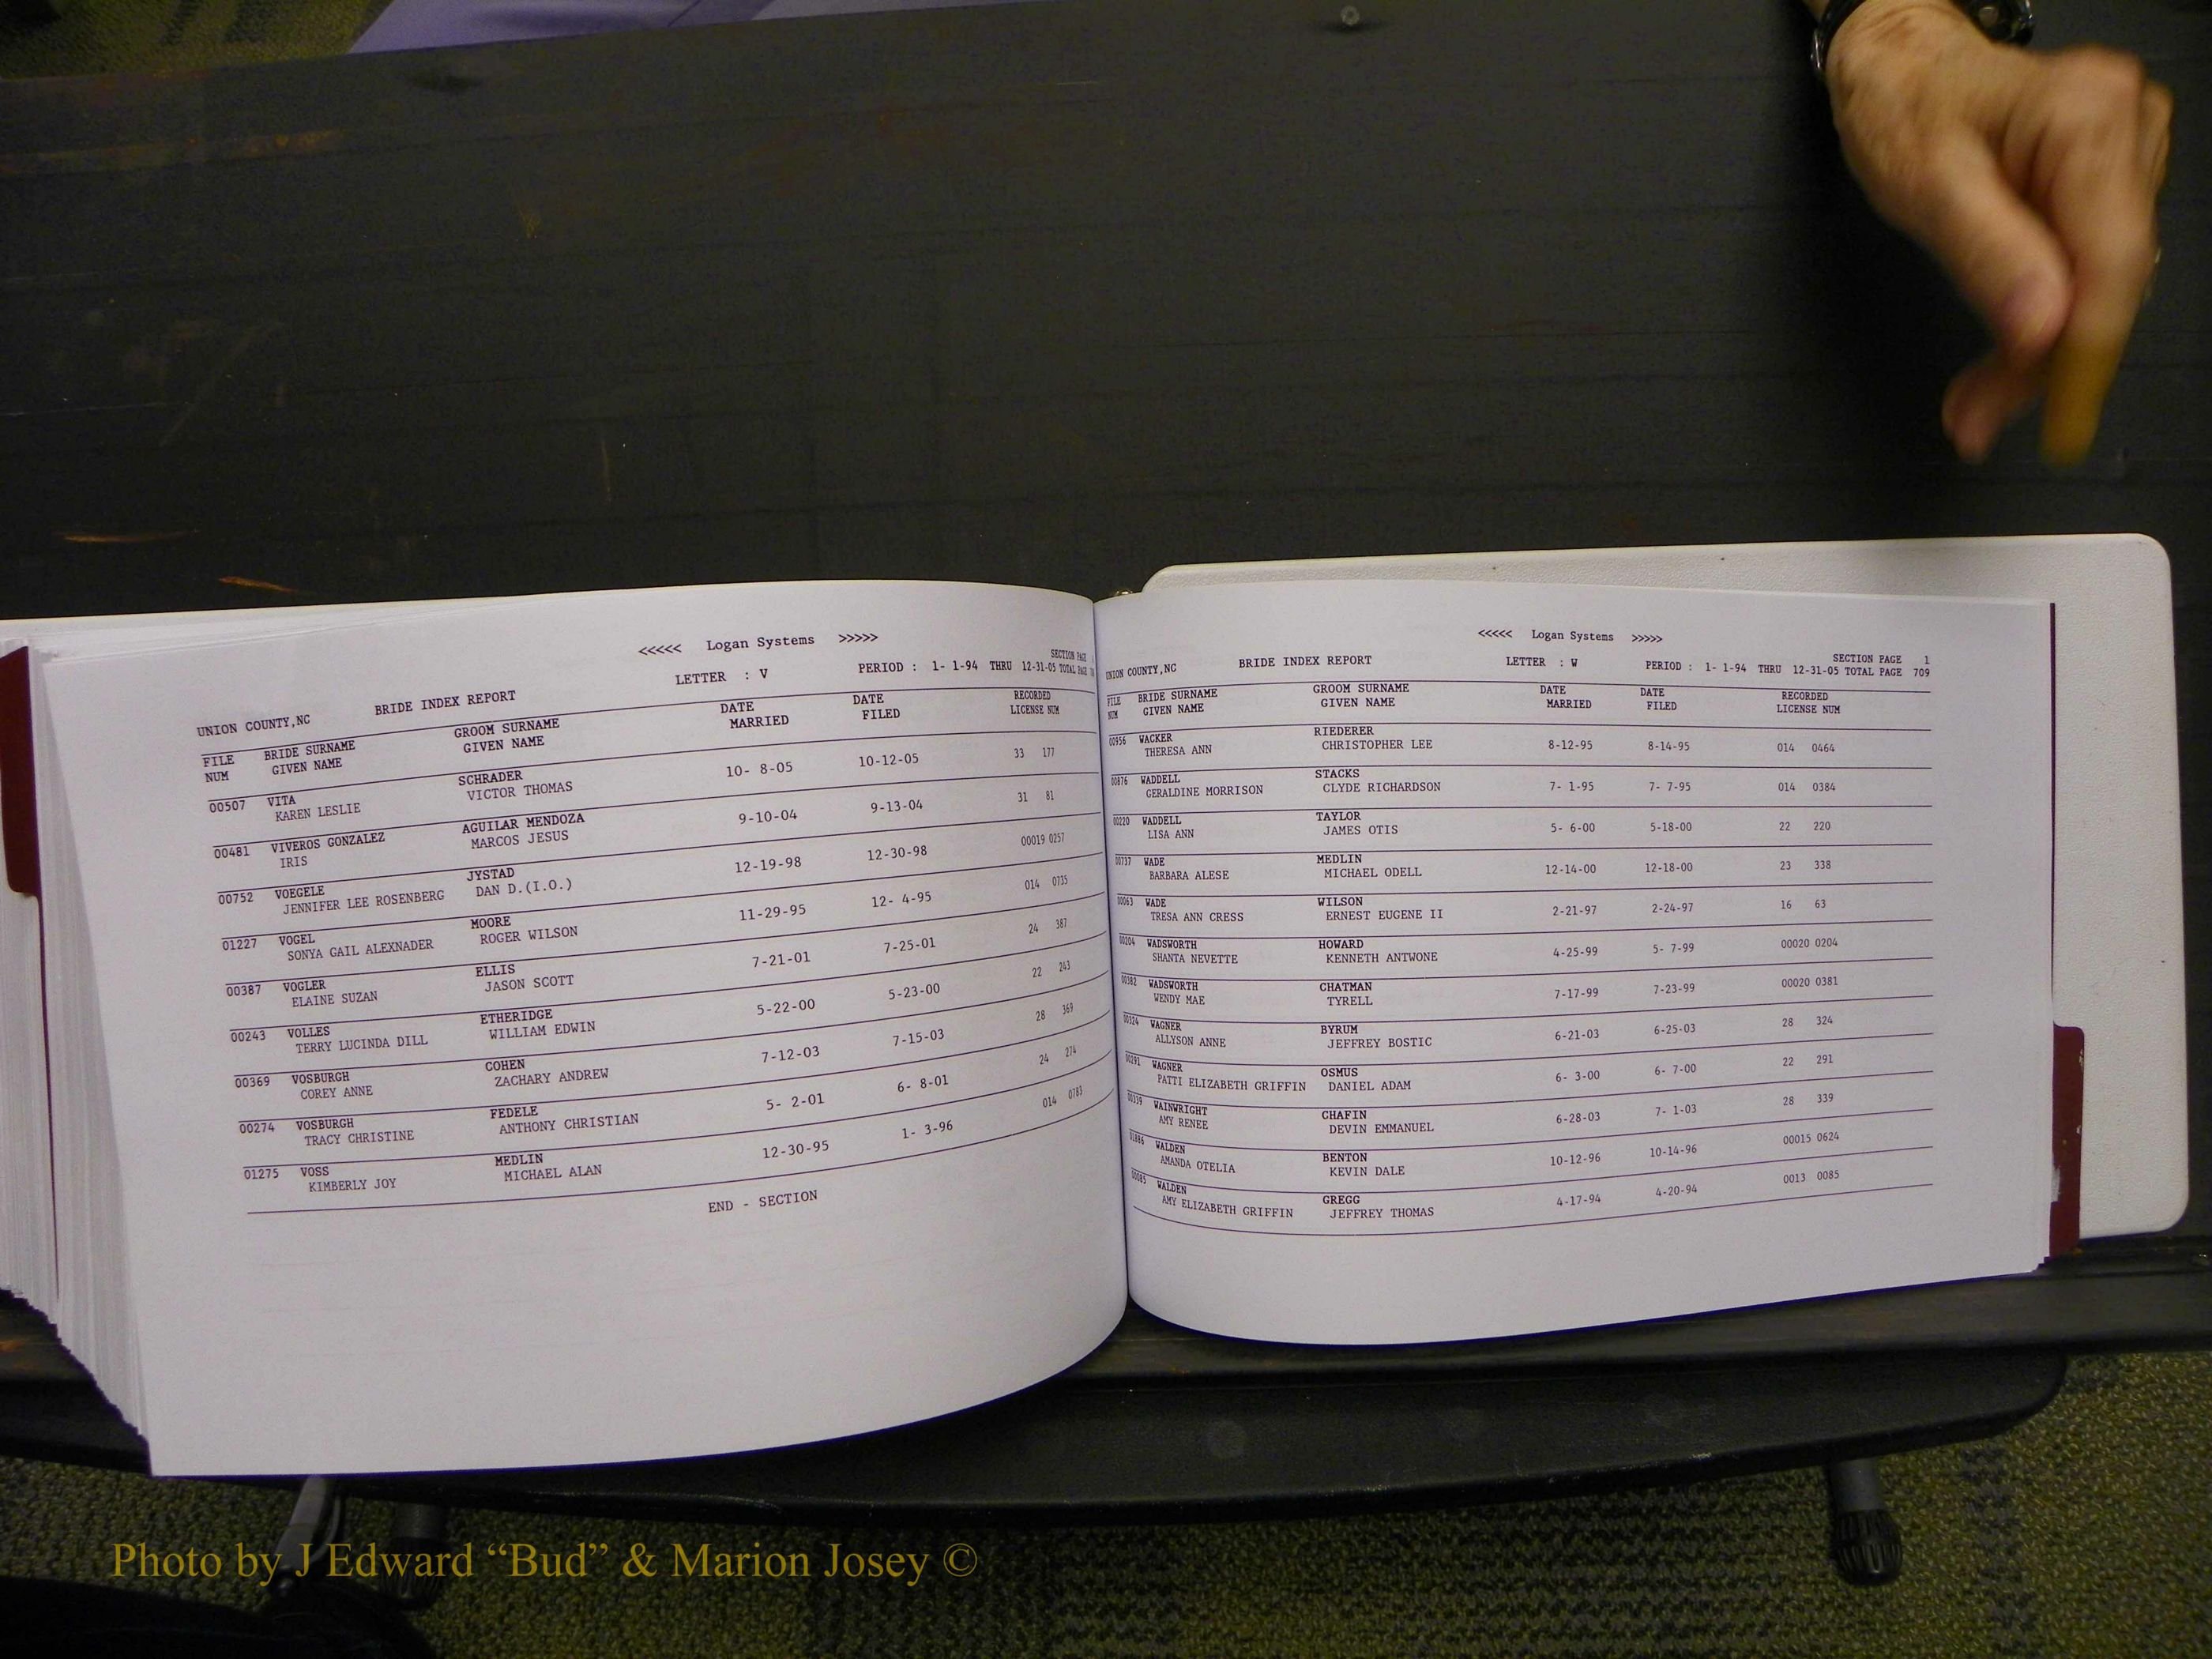 <<<<< Logan Systems >>>>>
UNION COUNTY,NC BRIDE INDEX REPORT LETTER : V PERIOD : 1- 1-94 THRU 12-31-05 SECTION PAGE
TOTAL PAGE
FILE BRIDE SURNAME GROOM SURNAME DATE DATE RECORDED
NUM GIVEN NAME GIVEN NAME MARRIED FILED LICENSE NUM
00507 VITA SCHRADER 10- 8-05 10-12-05 33 177
KAREN LESLIE VICTOR THOMAS
00481 VIVEROS GONZALEZ AGUILAR MENDOZA 9-10-04 9-13-04 31 81
IRIS MARCOS JESUS
00752 VOEGELE JYSTAD 12-19-98 12-30-98 00019 0257
JENNIFER LEE ROSENBERG DAN D.(I.O.)
01227 VOGEL MOORE 11-29-95 12- 4-95 014 0735
SONYA GAIL ALEXNADER ROGER WILSON
00387 VOGLER ELLIS 7-21-01 7-25-01 24 387
ELAINE SUZAN JASON SCOTT
00243 VOLLES ETHERIDGE 5-22-00 5-23-00 22 243
TERRY LUCINDA DILL WILLIAM EDWIN
00369 VOSBURGH COHEN 7-12-03 7-15-03 28 369
COREY ANNE ZACHARY ANDREW
00274 VOSBURGH FEDELE 5- 2-01 6- 8-01 24 274
TRACY CHRISTINE ANTHONY CHRISTIAN
01275 VOSS MEDLIN 12-30-95 1- 3-96 014 0783
KIMBERLY JOY MICHAEL ALAN
END - SECTION
<<<<< Logan Systems >>>>>
UNION COUNTY,NC BRIDE INDEX REPORT LETTER : W PERIOD : 1- 1-94 THRU 12-31-05 SECTION PAGE 1
TOTAL PAGE 709
FILE BRIDE SURNAME GROOM SURNAME DATE DATE RECORDED
NUM GIVEN NAME GIVEN NAME MARRIED FILED LICENSE NUM
00956 WACKER RIEDERER 8-12-95 8-14-95 014 0464
THERESA ANN CHRISTOPHER LEE
00876 WADDELL STACKS 7- 1-95 7- 7-95 014 0384
GERALDINE MORRISON CLYDE RICHARDSON
00220 WADDELL TAYLOR 5- 6-00 5-18-00 22 220
LISA ANN JAMES OTIS
00737 WADE MEDLIN 12-14-00 12-18-00 23 338
BARBARA ALESE MICHAEL ODELL
00063 WADE WILSON 2-21-97 2-24-97 16 63
TRESA ANN CRESS ERNEST EUGENE II
00204 WADSWORTH HOWARD 4-25-99 5- 7-99 00020 0204
SHANTA NEVETTE KENNETH ANTWONE
00382 WADSWORTH CHATMAN 7-17-99 7-23-99 00020 0381
WENDY MAE TYRELL
00324 WAGNER BYRUM 6-21-03 6-25-03 28 324
ALLYSON ANNE JEFFREY BOSTIC
00291 WAGNER OSMUS 6- 3-00 6- 7-00 22 291
PATTI ELIZABETH GRIFFIN DANIEL ADAM
00339 WAINWRIGHT CHAFIN 6-28-03 7- 1-03 28 339
AMY RENEE DEVIN EMMANUEL
01886 WALDEN BENTON 10-12-96 10-14-96 00015 0624
AMANDA OTELIA KEVIN DALE
00085 WALDEN GREGG 4-17-94 4-20-94 0013 0085
AMY ELIZABETH GRIFFIN JEFFREY THOMAS
Photo by J Edward “Bud” & Marion Josey ©